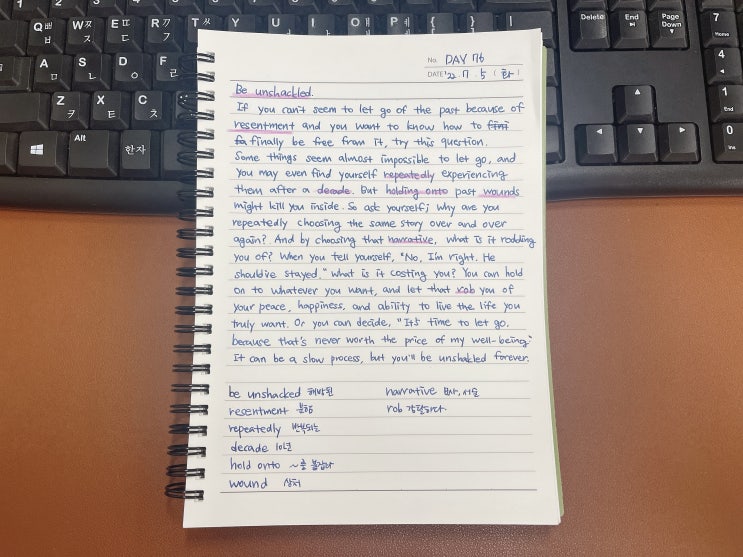 Delete
End
Page Down
7
Home
4
1
End
0
Ins
Q ㅃ ㅂ
W ㅉ ㅈ
E ㄸ ㄷ
R ㄲ ㄱ
T ㅆ
Y
U
I
O
P
{
}
|
A ㅁ
S ㄴ
D ㅇ
F
Z ㅋ
X ㅌ
C ㅊ
Alt
한자
No. DAY 76
DATE '22. 7. 5 ( 화 )
Be unshackled.
If you can't seem to let go of the past because of
resentment and you want to know how to fini
fa finally be free from it, try this question.
Some things seem almost impossible to let go, and
you may even find yourself repeatedly experiencing
them after a decade. But holding onto past wounds
might kill you inside. So ask yourself; why are you
repeatedly choosing the same story over and over
again? And by choosing that narrative, what is it rodding
you of? When you tell yourself, "No, I'm right. He
should've stayed." what is it costing you? You can hold
on to whatever you want, and let that rob you of
your peace, happiness, and ability to live the life you
truly want. Or you can decide, "It's time to let go,
because that's never worth the price of my well-being."
It can be a slow process, but you'll be unshakled forever.
be unshacked 해방된 narrative 묘사, 서술
resentment 분함 rob 강탈하다
repeatedly 반복되는
decade 10년
hold onto ~을 붙잡다
wound 상처